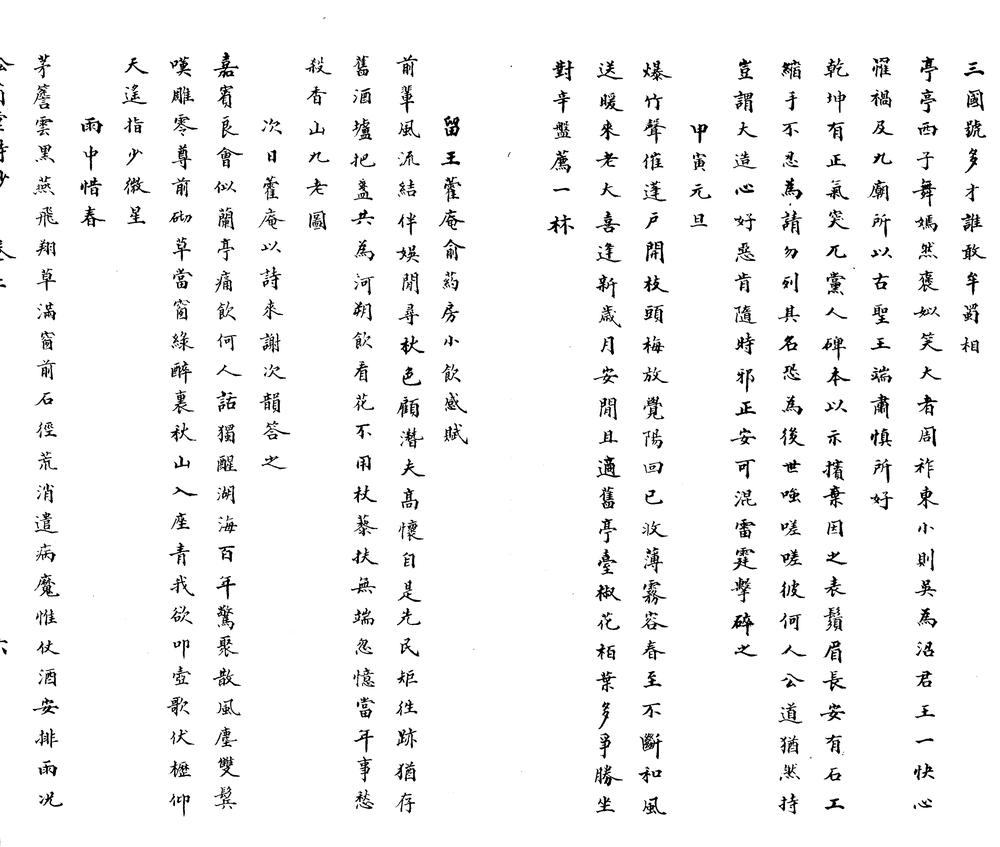 三國號多才誰敢牟蜀相
亭亭西子舞嫣然褒姒笑大者周祚東小則吳為沼君王一快心
罹禍及九廟所以古聖王端肅慎所好
乾坤有正氣突兀黨人碑本以示擯棄因之表鬚眉長安有石工
縮手不忍為請勿列其名恐為後世嗤嗟嗟彼何人公道猶然持
豈謂大造心好惡肯隨時邪正安可混雷霆擊碎之
甲寅元旦
爆竹聲催蓬戶開枝頭梅放覺陽回已收薄霧容春至不斷和風
送暖來老大喜逢新歲月安閒且適舊亭臺椒花柏葉多爭勝坐
對辛盤薦一杯
留王藿庵俞葯房小飲感賦
前輩風流結伴娛閒尋秋色顧潛夫高懷自是先民矩往跡猶存
舊酒壚把盞共為河朔飲看花不用杖藜扶無端忽憶當年事愁
殺香山九老圖
次日藿庵以詩來謝次韻答之
嘉賓良會似蘭亭痛飲何人話獨醒湖海百年驚聚散風塵雙鬂
嘆雕零尊前砌草當窗綠醉裏秋山入座青我欲叩壺歌伏櫪仰
天遙指少微星
雨中惜春
茅簷雲黑燕飛翔草滿窗前石徑荒消遣病魔惟仗酒安排雨况